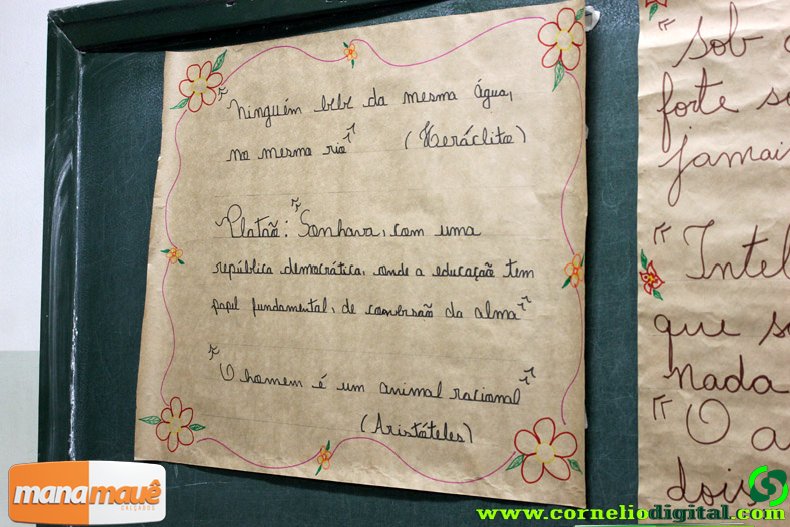 "Ninguém bebe da mesma água,
no mesmo rio" (Heráclito)
Platão: "Sonhava, com uma
república democrática, onde a educação tem
papel fundamental, de conversão da alma"
"O homem é um animal racional"
(Aristóteles)
"Sob
forte
jamai
"Intel
que
nada
"O a
dois
manamauê
CALÇADOS
www.corneliodigital.com